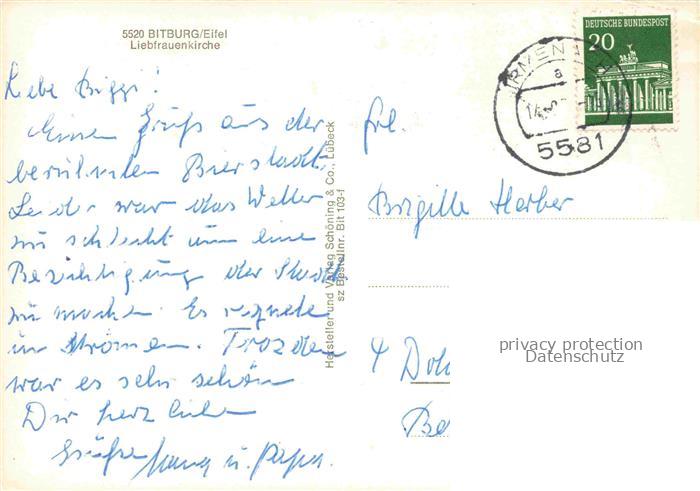 5520 BITBURG/Eifel
Liebfrauenkirche
DEUTSCHE BUNDESPOST
20
IRMEN
a
14
5581
Liebe Biggi!
Einen Gruß aus der
berühmten Bierstadt.
Leider war das Wetter
zu schlecht um eine
Besichtigung der Stadt
zu machen. Es regnete
in Strömen. Trozdem
war es sehr schön
Dir herzliche
Grüße Mama u. Papa.
Hersteller und Verlag Schöning & Co., Lübeck
sz Bestellnr. Bit 103-f
Frl.
Birgitte Herber
4 Dok
Be
privacy protection
Datenschutz